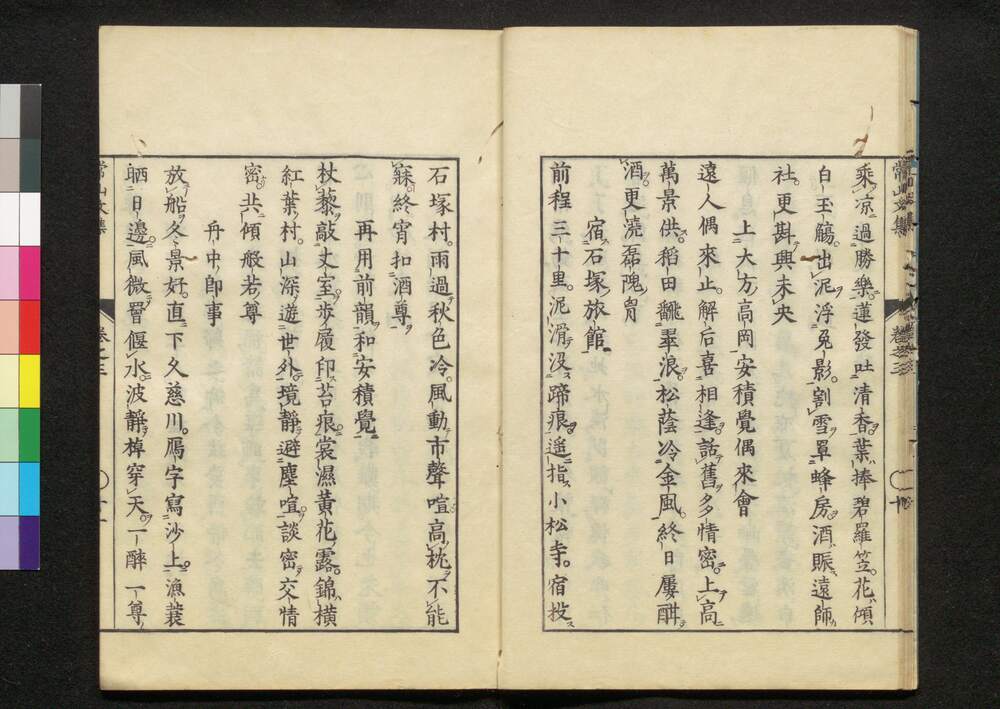 乘凉過勝樂。蓮發吐清香。葉捧碧羅笠。花傾
白玉觴。出泥浮兔影。割雪單蜂房。酒賑遠師
社。更斟興未央
上大方高岡安積覺偶來會
遠人偶來止。解后喜相逢。話舊多情密。上高
萬景供。稻田飜翠浪。松蔭冷金風。終日屢酣
酒。更澆磊隗胷
宿石塚旅館
前程三十里。泥滑沒蹄痕。遙指小松寺。宿投
石塚村。雨過秋色冷。風動市聲喧。高枕不能
寐。終宵扣酒尊
再用前韻和安積覺
杖藜敲丈室。步屨印苔痕。裳濕黃花露。錦橫
紅葉村。山深遊世外。境靜避塵喧。談密交情
密。共傾般若尊
舟中卽事
放船冬景好。直下久慈川。鴈字寫沙上。漁蓑
晒日邊。風微罾偃水。波靜棹穿天。一醉一尊
常山文集
卷之三
常山文集
卷之三
十一